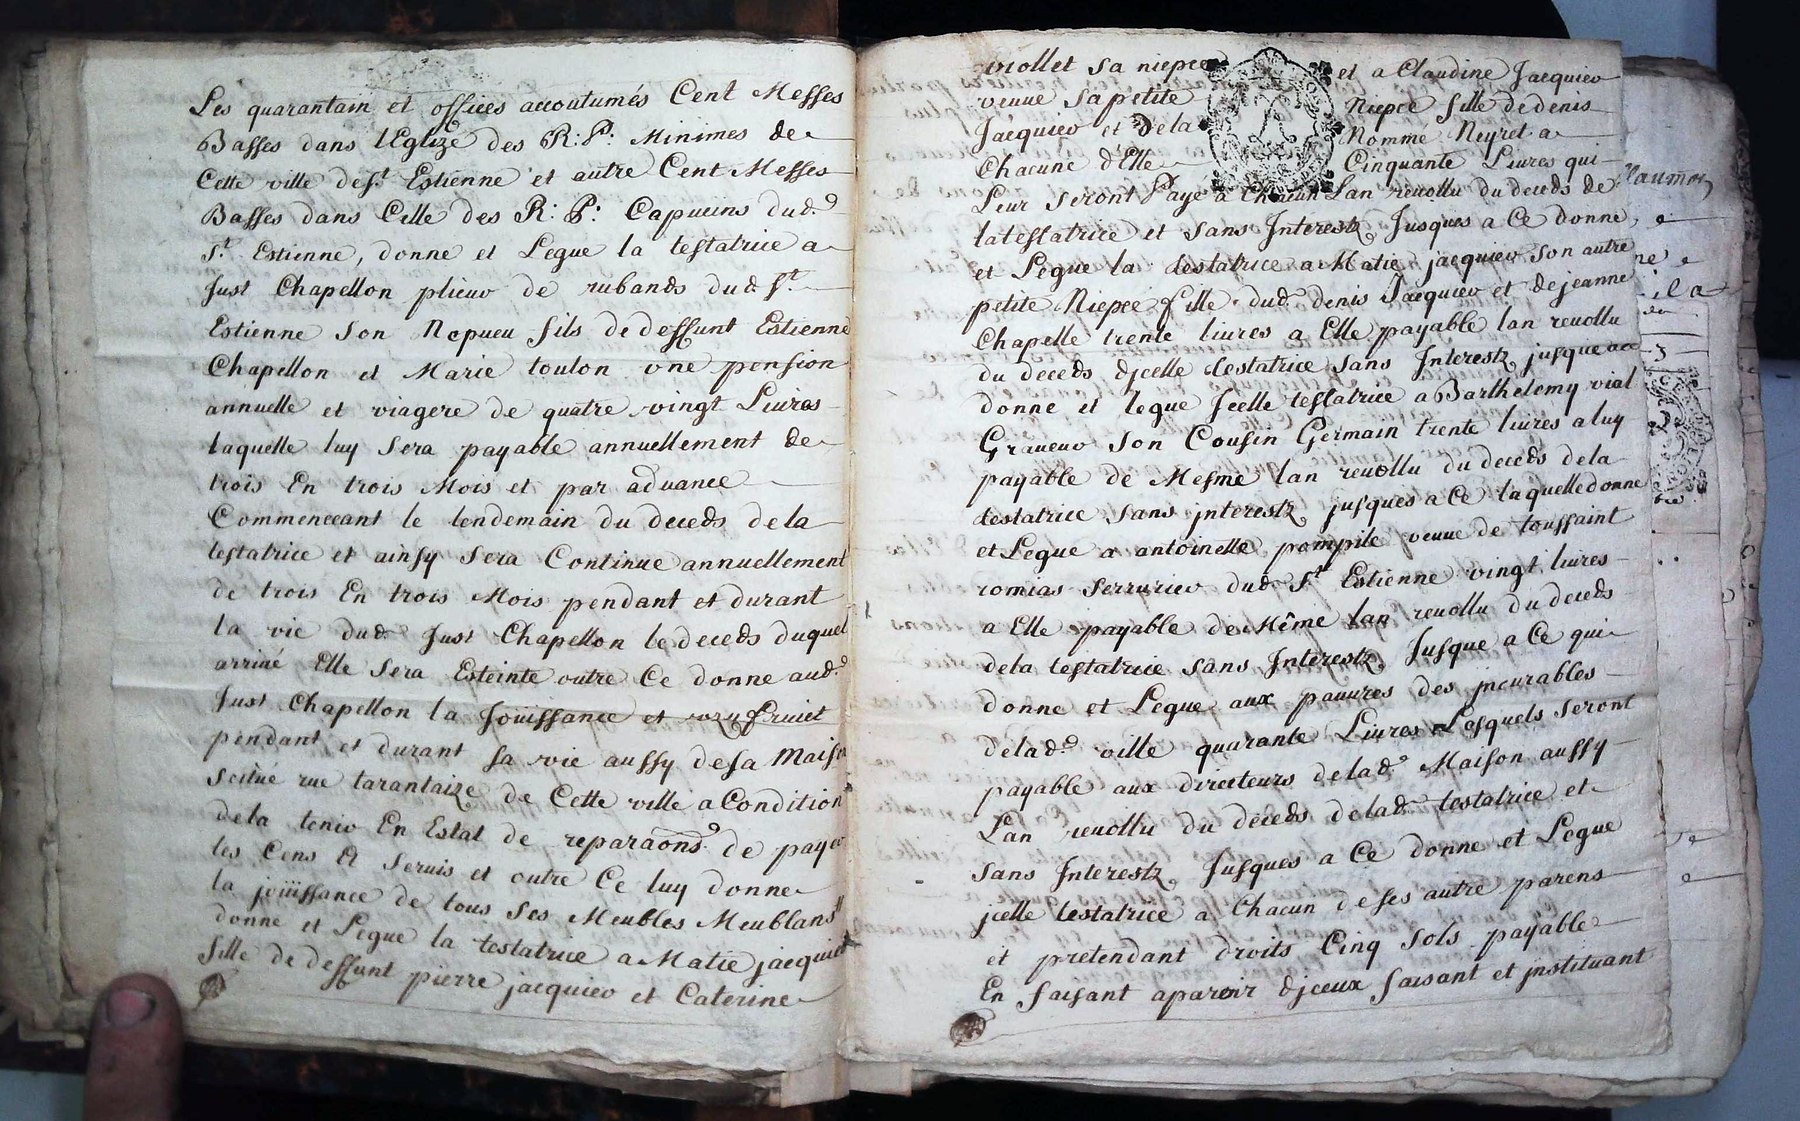 Les quarantain et offices accoutumés Cent Messes
Basses dans l'Eglize des R: P: Minimes de
Cette ville de St. Estienne et autre Cent Messes
Basses dans Celle des R: P: Capucins dud.
St. Estienne, donne et Legue la testatrice a
Just Chapellon plieur de rubands dud St
Estienne son Nepueu fils de deffunt Estienne
Chapellon et Marie toulon une pension
annuelle et viagere de quatre vingt Liures
laquelle luy sera payable annuellement de
trois En trois Mois et par aduance
Commenceant le lendemain du deceds de la
testatrice et ainsy sera Continue annuellement
de trois En trois Mois pendant et durant
la vie dud Just Chapellon le deceds duquel
arriué Elle sera Esteinte outre Ce donne aud.
Just Chapellon la Joüissance et uzufruict
pendant et durant sa vie aussy de sa Maison
scitué rue tarantaize de Cette ville a Condition
de la tenir En Estat de reparaons de payer
les Cens & seruis et outre Ce luy donne
la joüissance de tous ses Meubles Meublans
donne et Legue la testatrice a Matie jacquier
fille de deffunt pierre jacquier et Caterine
viollet sa niepce et a Claudine Jacquier
veuue sa petite Niepce fille de denis
Jacquier et de la Nomme Neyret a
Chacune d'Elle Cinquante Liures qui
Leur seront Payé a Chacun Lan reuollu du deceds de
la testatrice et sans Interestz Jusques a Ce donne,
et Legue la testatrice a Matie jacquier son autre
petite Niepce fille dud denis Jacquier et de jeanne
Chapelle trente liures a Elle payable lan reuollu
du deceds djcelle testatrice sans Interestz jusque a ce
donne et legue Jcelle testatrice a Barthelemy vial
Graueur son Cousin Germain trente liures a luy
payable de Mesme lan reuollu du deceds de la
testatrice sans jnterestz jusques a Ce laquelle donne
et Legue a antoinelle pompile veuue de toussaint
romias serrurier dud St Estienne vingt liures
a Elle payable de Même lan reuollu du deceds
de la testatrice sans Interestz Jusque a Ce qui
donne et Legue aux pauures des jncurables
de lad. ville quarante Liures Lesquels seront
payable aux directeurs de lad. Maison aussy
Lan reuollu du deceds de lad. testatrice et
sans Interestz Jusques a Ce donne et Legue
jcelle testatrice a Chacun de ses autre parens
et pretendant droits Cinq sols payable
En faisant aparoir djceux faisant et jnstituant